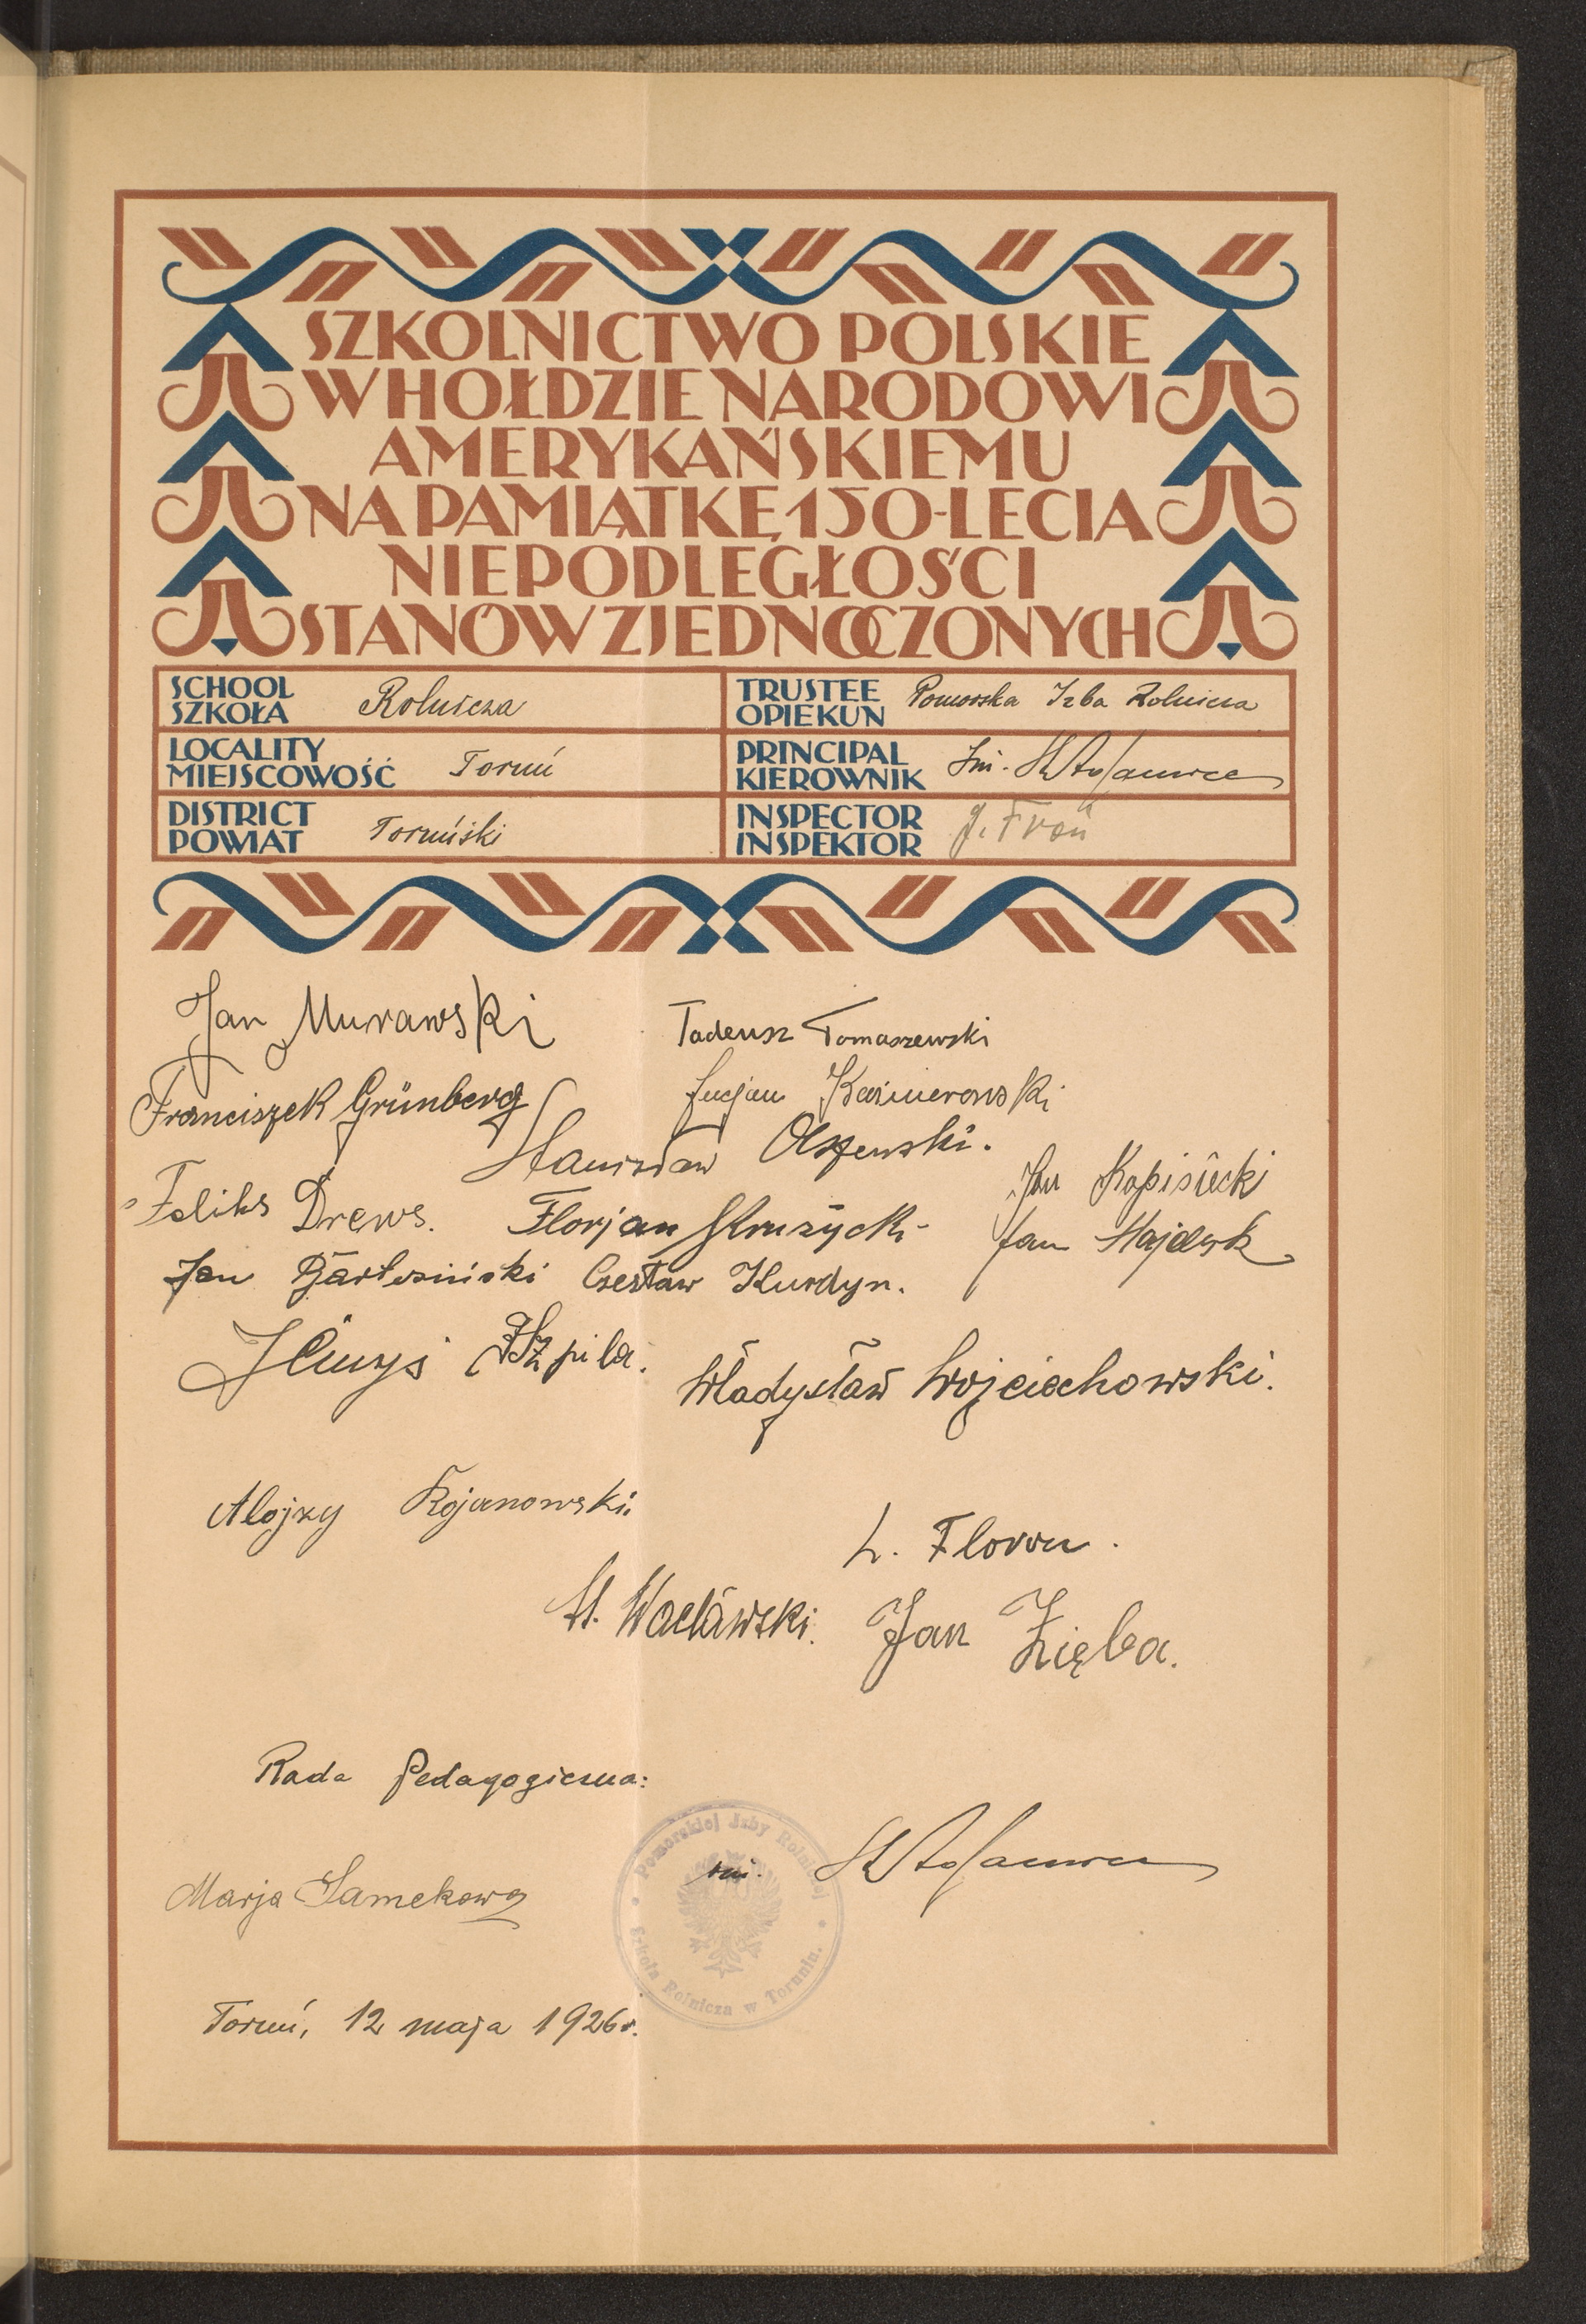 SZKOLNICTWO POLSKIE
W HOŁDZIE NARODOWI
AMERYKAŃSKIEMU
NA PAMIĄTKĘ 150-LECIA
NIEPODLEGŁOŚCI
STANÓW ZJEDNOCZONYCH
SCHOOL
SZKOŁA Rolnicza
TRUSTEE
OPIEKUN Pomorska Izba Rolnicza
LOCALITY
MIEJSCOWOŚĆ Toruń
PRINCIPAL
KIEROWNIK Inż.
DISTRICT
POWIAT Toruński
INSPECTOR
INSPEKTOR J. Froń
Jan Murawski
Tadeusz Tomaszewski
Franciszek Grünberg
Lucjan Kaźmierowski
Stanisław Olszewski.
Feliks Drews.
Florjan Kruszycki
Jan Kopistecki
Jan Majdrk
Jan Bartosiński Czesław Kurdyn.
Szpila.
Władysław Wojciechowski.
Alojzy Rojanowski
L. Florou.
St. Wacławski.
Jan Zięba.
Rada Pedagogiczna:
Pomorskiej Izby Rolniczej
inż.
Marja Samekowa
Szkoła Rolnicza w Toruniu.
Toruń, 12 maja 1926 r.